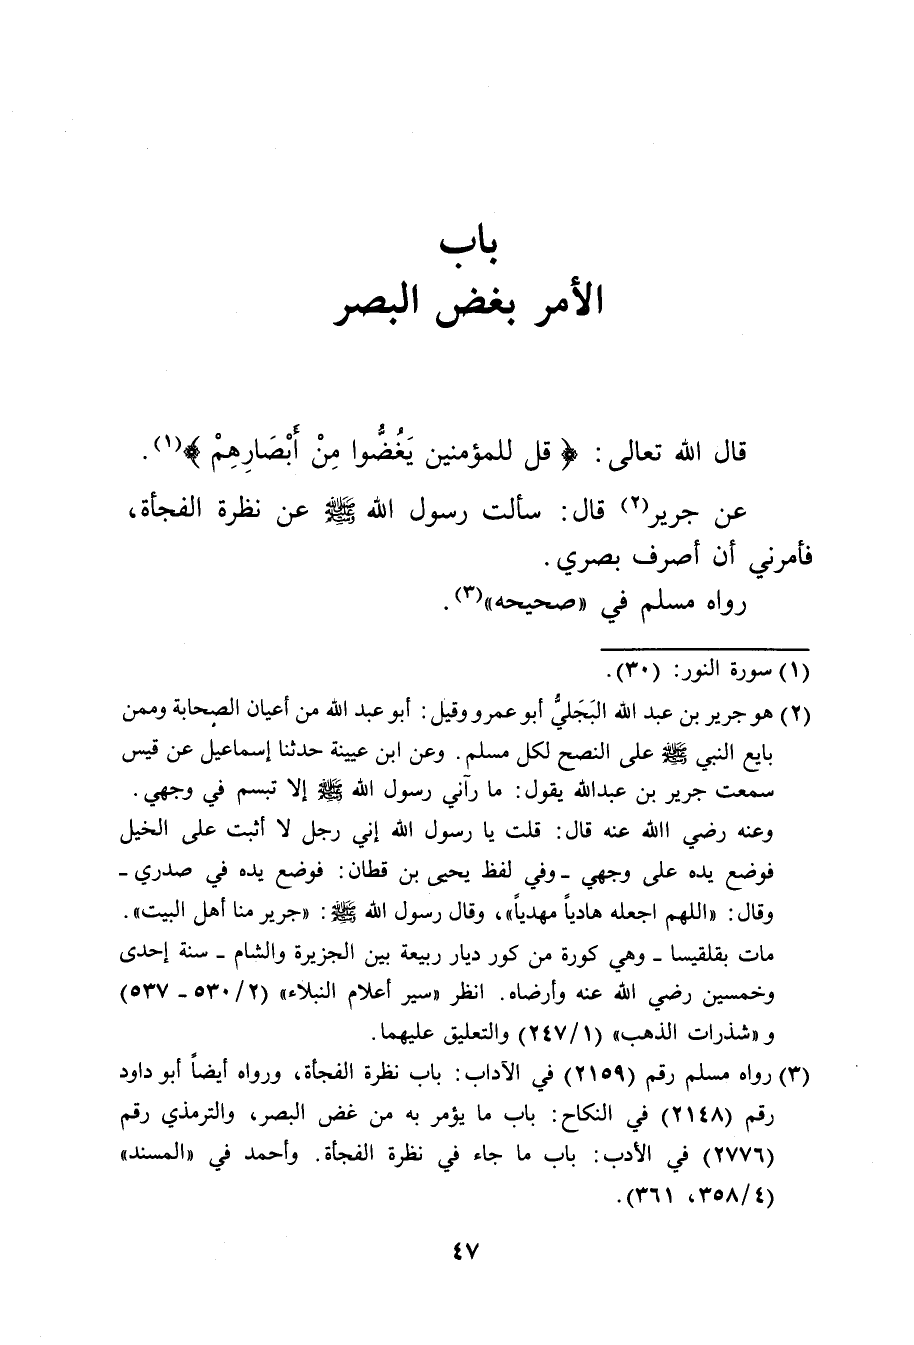 باب
الأمر بغض البصر
قال الله تعالى: ﴿ قل للمؤمنين يَغُضُّوا مِنْ أَبْصَارِهِمْ ﴾(١).
عن جرير(٢) قال: سألت رسول الله ﷺ عن نظرة الفجأة،
فأمرني أن أصرف بصري.
رواه مسلم في «صحيحه»(٣).
(١) سورة النور: (٣٠).
(٢) هو جرير بن عبد الله البَجَليُّ أبو عمرو وقيل: أبو عبد الله من أعيان الصحابة وممن
بايع النبي ﷺ على النصح لكل مسلم. وعن ابن عيينة حدثنا إسماعيل عن قيس
سمعت جرير بن عبدالله يقول: ما رآني رسول الله ﷺ إلا تبسم في وجهي.
وعنه رضي االله عنه قال: قلت يا رسول الله إني رجل لا أثبت على الخيل
فوضع يده على وجهي ـ وفي لفظ يحيى بن قطان: فوضع يده في صدري ـ
وقال: «اللهم اجعله هادياً مهدياً»، وقال رسول الله ﷺ: «جرير منا أهل البيت».
مات بقلقيسا ـ وهي كورة من كور ديار ربيعة بين الجزيرة والشام ـ سنة إحدى
وخمسين رضي الله عنه وأرضاه. انظر «سير أعلام النبلاء» (٢/ ٥٣٠ ـ ٥٣٧)
و «شذرات الذهب» (١/ ٢٤٧) والتعليق عليهما.
(٣) رواه مسلم رقم (٢١٥٩) في الآداب: باب نظرة الفجأة، ورواه أيضاً أبو داود
رقم (٢١٤٨) في النكاح: باب ما يؤمر به من غض البصر، والترمذي رقم
(٢٧٧٦) في الأدب: باب ما جاء في نظرة الفجأة. وأحمد في «المسند»
(٤/ ٣٥٨، ٣٦١).
٤٧